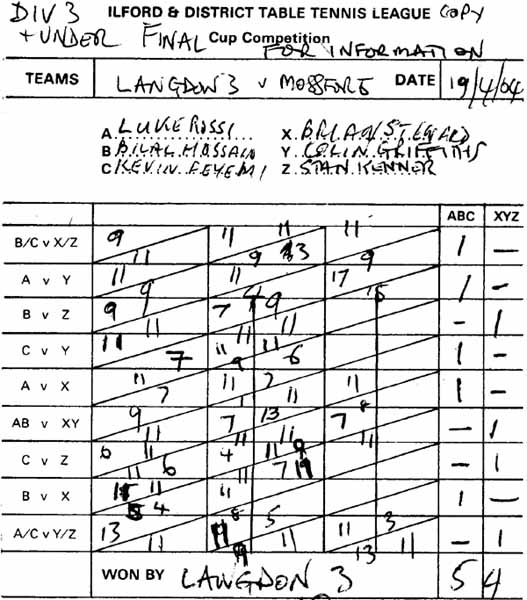 DIV 3 ILFORD & DISTRICT TABLE TENNIS LEAGUE COPY
+ UNDER FINAL Cup Competition FOR INFORMATION
TEAMS LANGDON 3 V MOSSFORD DATE 19/4/04
A LUKE ROSSI X. BRIAN STEWARD
B BILAL HUSSAIN Y COLIN GRIFFITHS
C KEVIN Z. STAN KENNER
ABC XYZ
B/C v X/Z 9 11 11 9 11 9 1 —
A v Y 11 9 11 17 15 1 —
B v Z 9 11 7 11 9 11 — 1
C v Y 11 7 11 9 11 6 1 —
A v X 11 7 11 7 11 11 8 1 —
AB v XY 9 11 7 11 13 11 7 11 — 1
C v Z 6 11 11 6 4 11 11 7 — 1
B v X 11 4 11 8 1 —
A/C v Y/Z 13 11 5 11 11 13 3 11 — 1
WON BY LANGDON 3 5 4